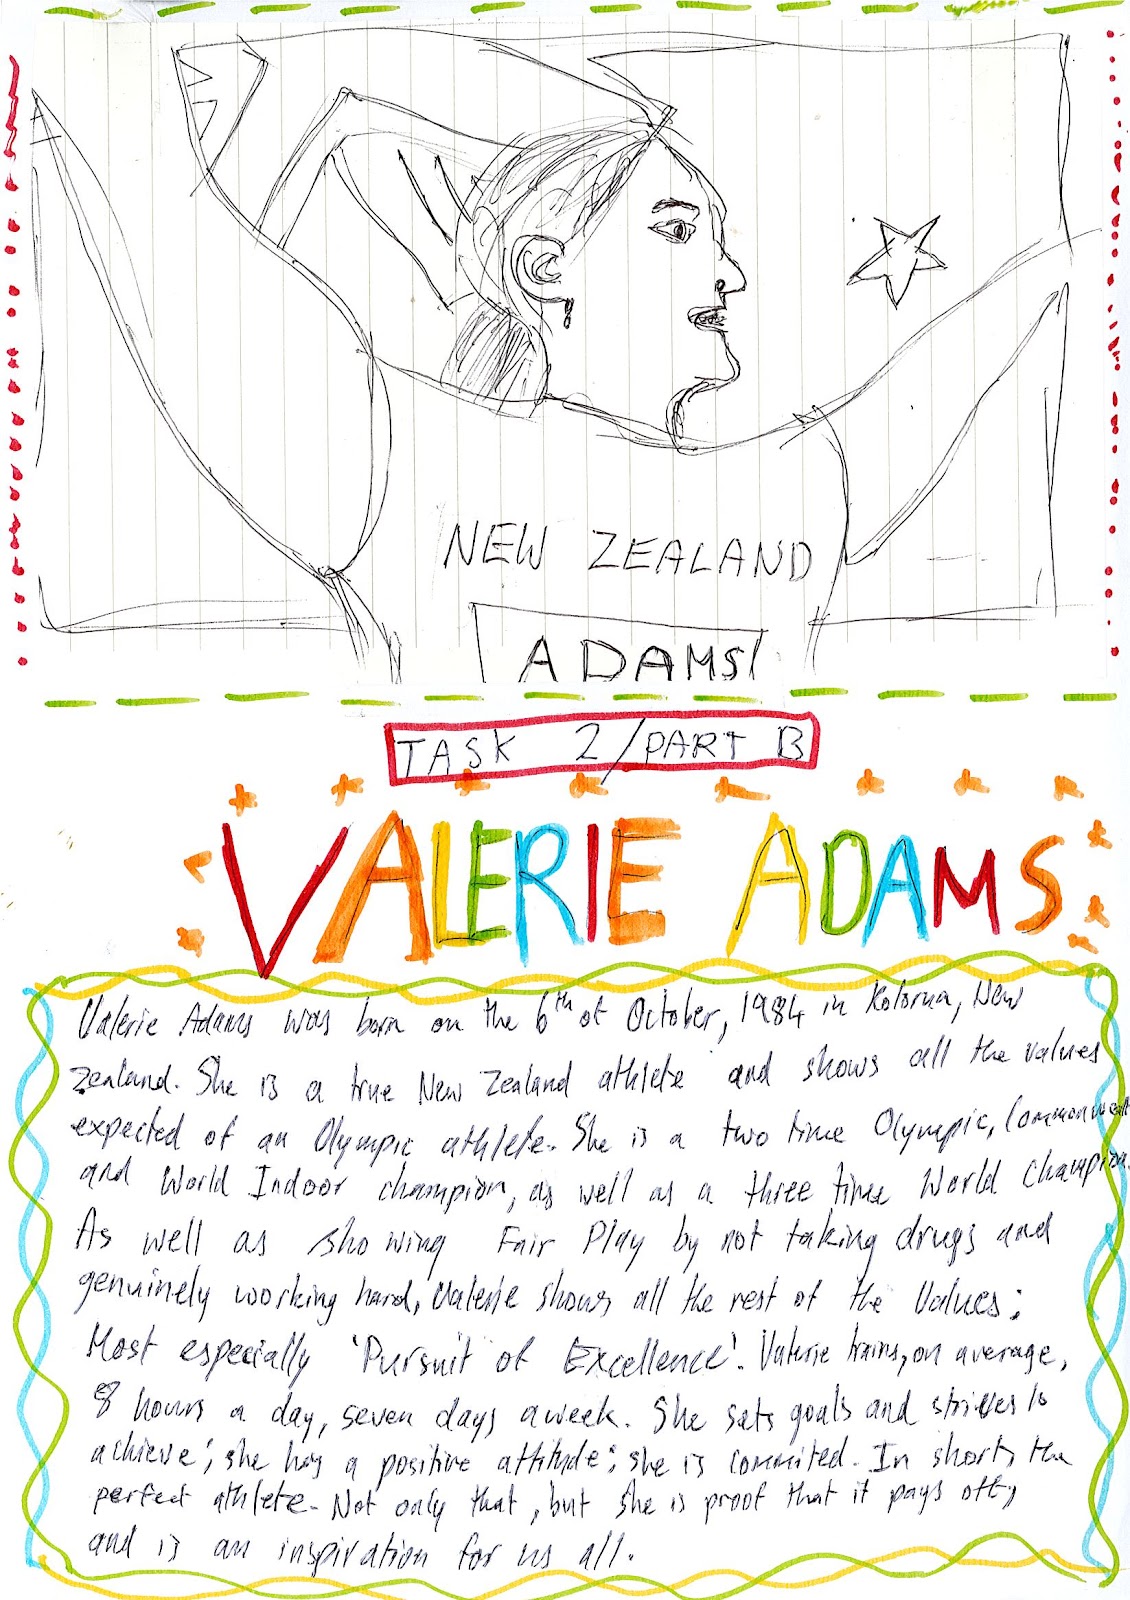 NEW ZEALAND
ADAMS
TASK 2/PART B
VALERIE ADAMS
Valerie Adams was born on the 6th of October, 1984 in Rotorua, New
Zealand. She is a true New Zealand athlete and shows all the values
expected of an Olympic athlete. She is a two time Olympic, Commonwealt
and World Indoor champion, as well as a three time World Champion.
As well as showing Fair Play by not taking drugs and
genuinely working hard, Valerie shows all the rest of the Values;
Most especially 'Pursuit of Excellence'. Valerie trains, on average,
8 hours a day, seven days a week. She sets goals and strives to
achieve; she has a positive attitude; she is commited. In short, the
perfect athlete. Not only that, but she is proof that it pays off,
and is an inspiration for us all.